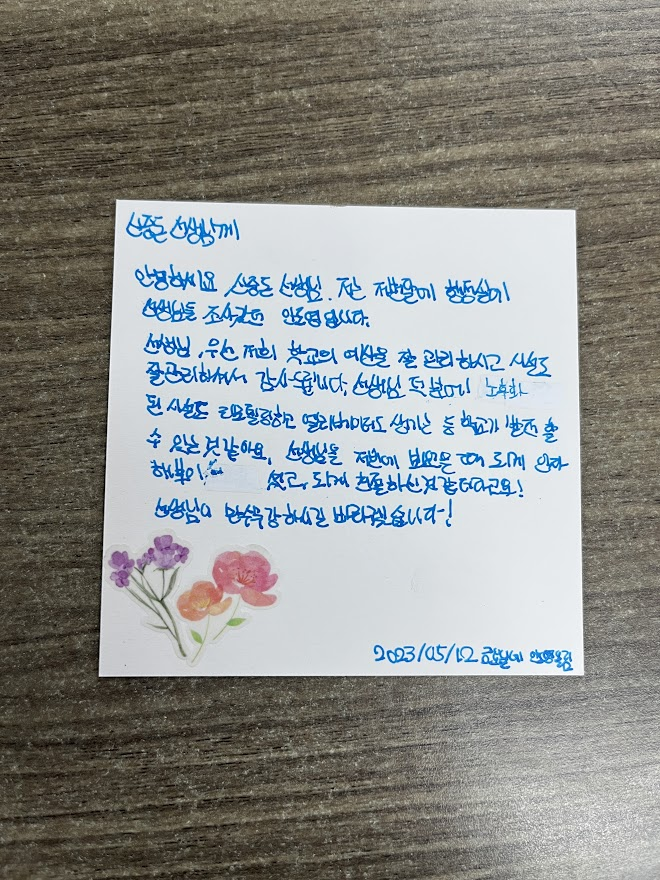 신종돈 선생님께
안녕하세요 신종돈 선생님. 저는 저번달에 행정실에
선생님들 조사갔던 입니다.
선생님, 우선 저희 학교의 예산을 잘 관리하시고 시설도
잘관리하셔서 감사드립니다. 선생님 덕분에 노후화
된 시설도 리모델링하고 엘리베이터도 생기는 등 학교가 발전 할
수 있는 것 같아요. 선생님을 저번에 뵈었을 때 되게 인자
하셨고, 되게 쾌활하신것 같더라고요!
선생님이 만수무강하시길 바라겠습니다~!
2023/05/12 금요일에 올림